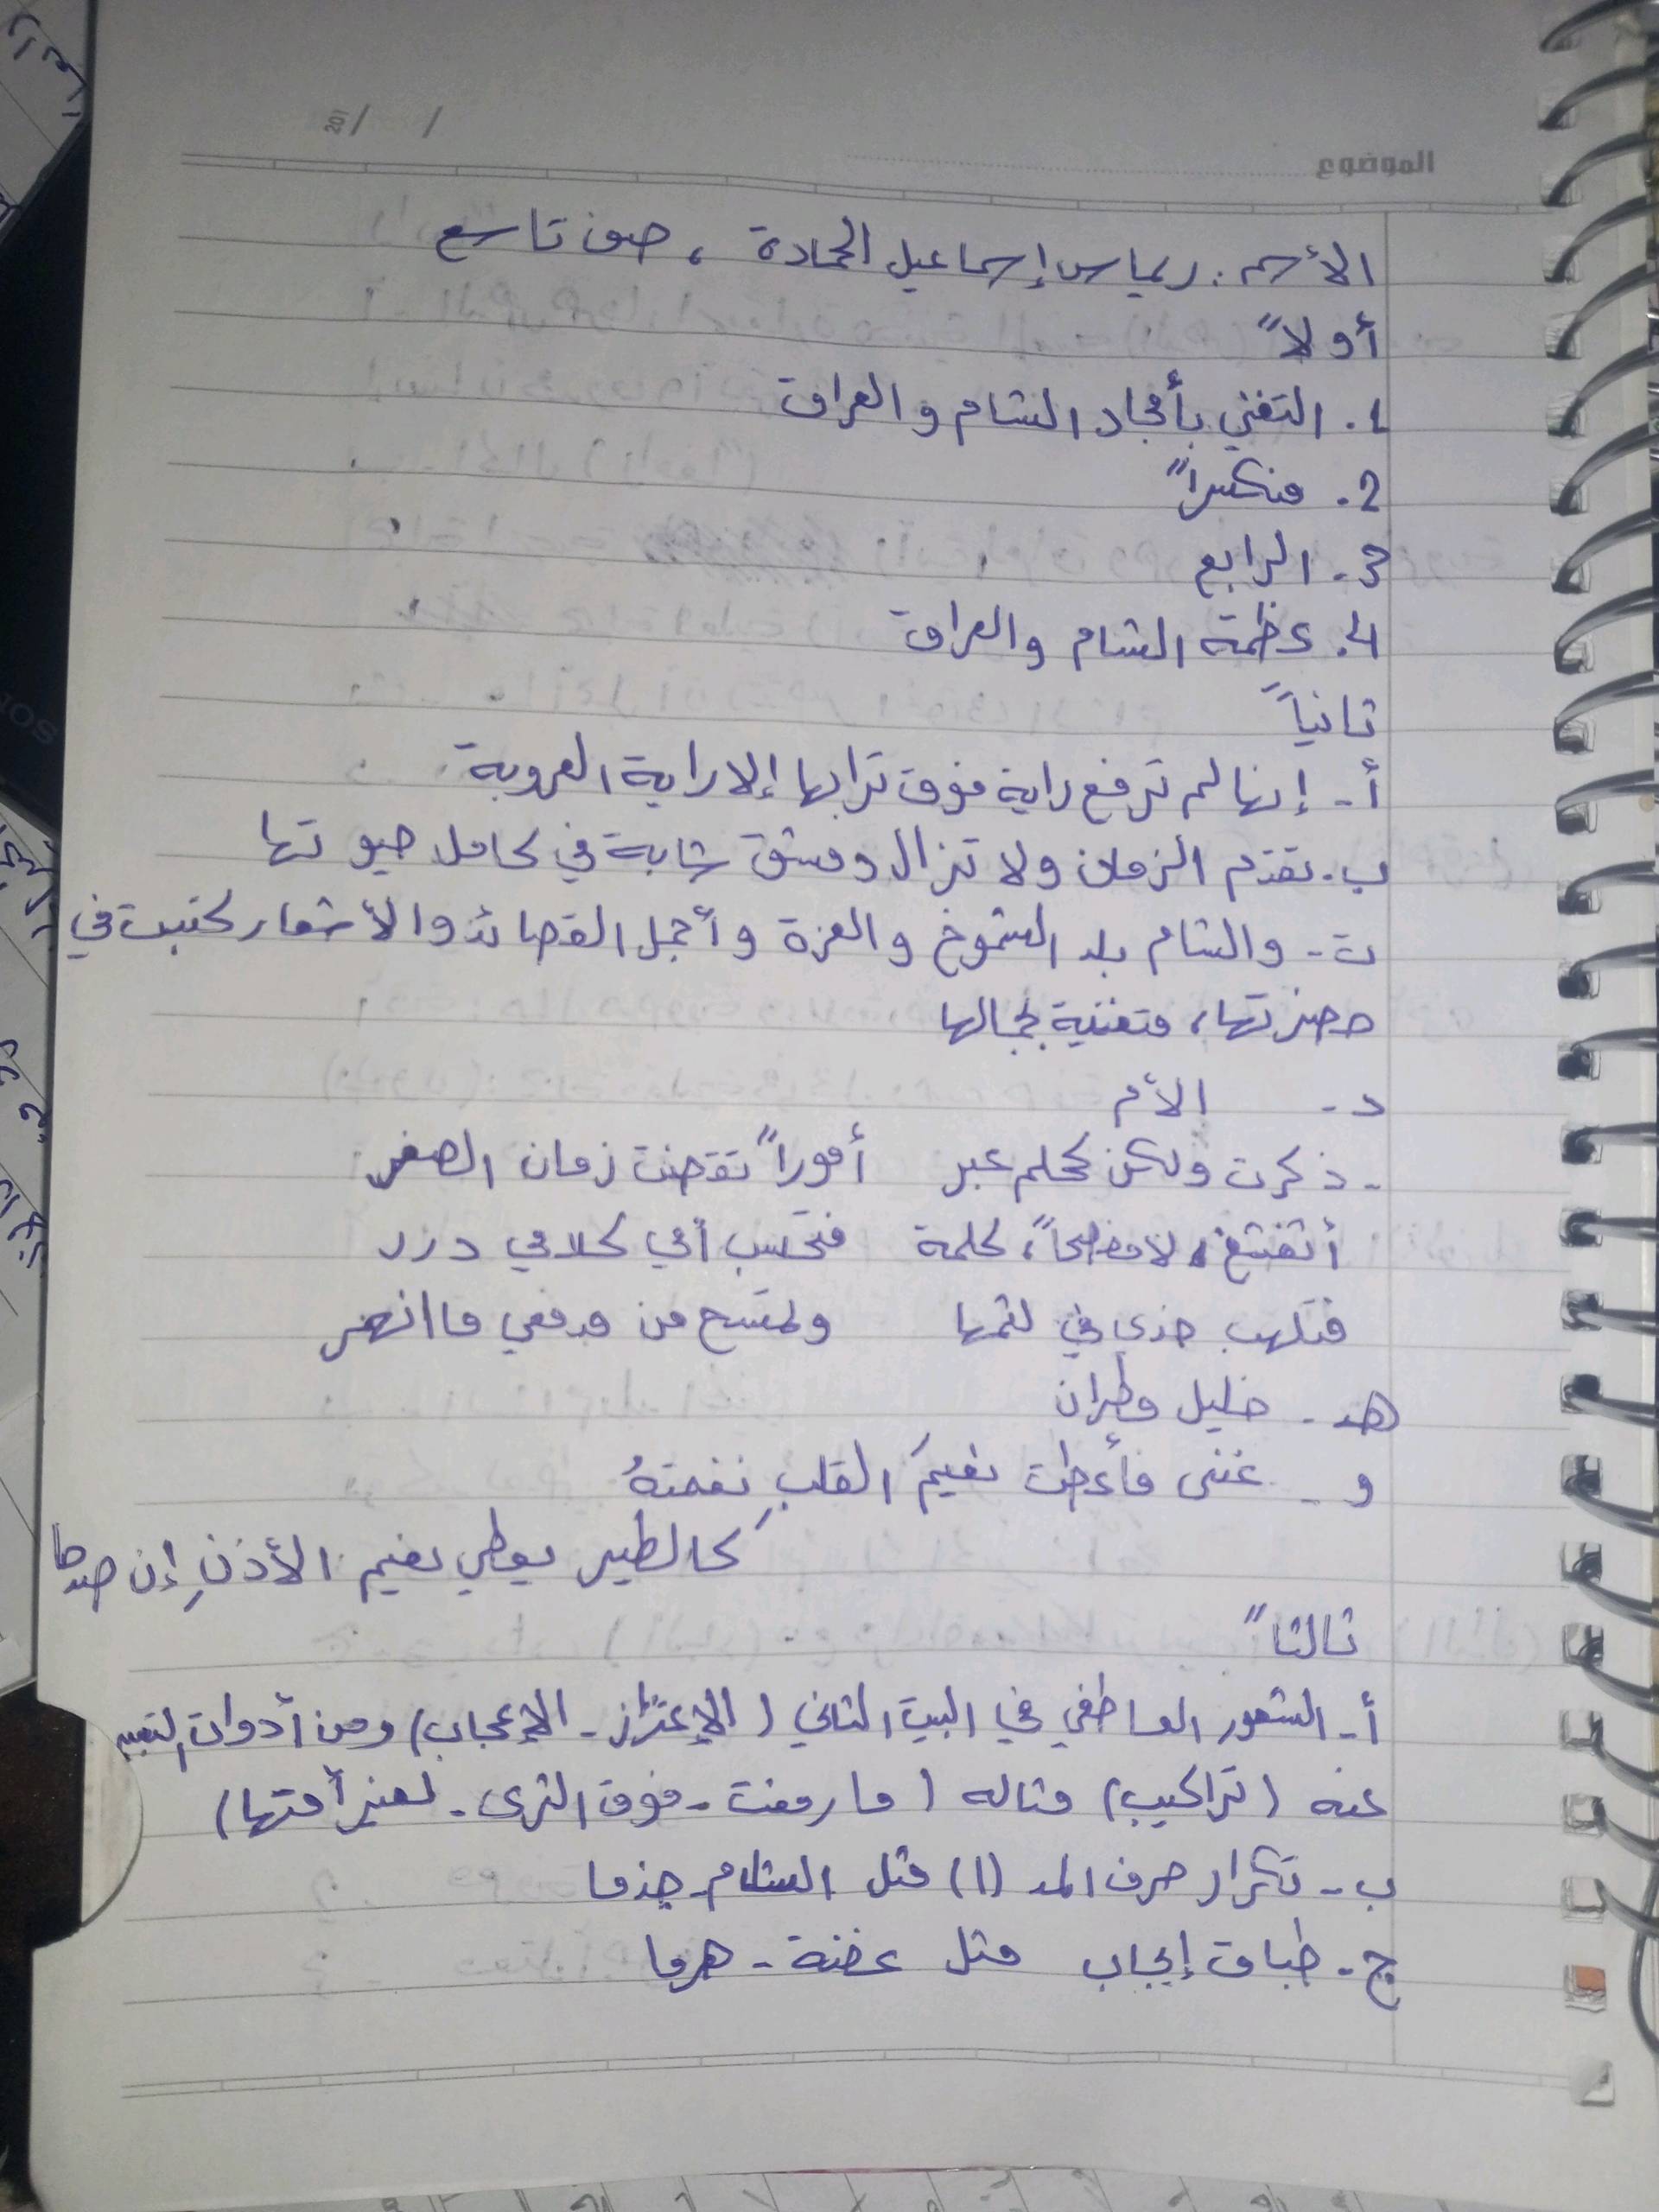 الموضوع
/ / 201
الأسم : ريماس إسماعيل الحمادة ، صف تاسع
أولاً
1. التغني بأمجاد الشام والعراق
2. منكسراً
3. الرابع
4. عظمة الشام والعراق
ثانياً
أ - إنها لم ترفع راية فوق ترابها إلا راية العروبة
ب - تقدم الزمان ولا تزال دمشق شابة في كامل حيو تها
ت - والشام بلد الشموخ والعزة وأجمل القصائد والأشعار كتبت في
حضرتها، متغنية بجمالها
د - الأم
- ذكرت ولكن كحلم عبر أموراً تقضت زمان الصغر
أتغتغ، لا مفصحاً، كلمة فتحسب أمي كلامي درر
فتلهب خدي في لثمها وتمسح من مدمعي ما انهمر
هـ - خليل مطران
و - غنى فأعطت نعيمَ القلبِ نغمتهُ
كالطير يعطي نعيم الأذنِ إن صدحا
ثالثاً
أ - الشعور العاطفي في البيت الثاني ( الإعتزاز - الإعجاب) ومن أدوات التعبير
عنه (تراكيب) مثاله ( ما رفعت - فوق الثرى - لغير أمتها)
ب - تكرار حرف المد (ا) مثل الشام -
ج - طباق إيجاب مثل غضة - هرما